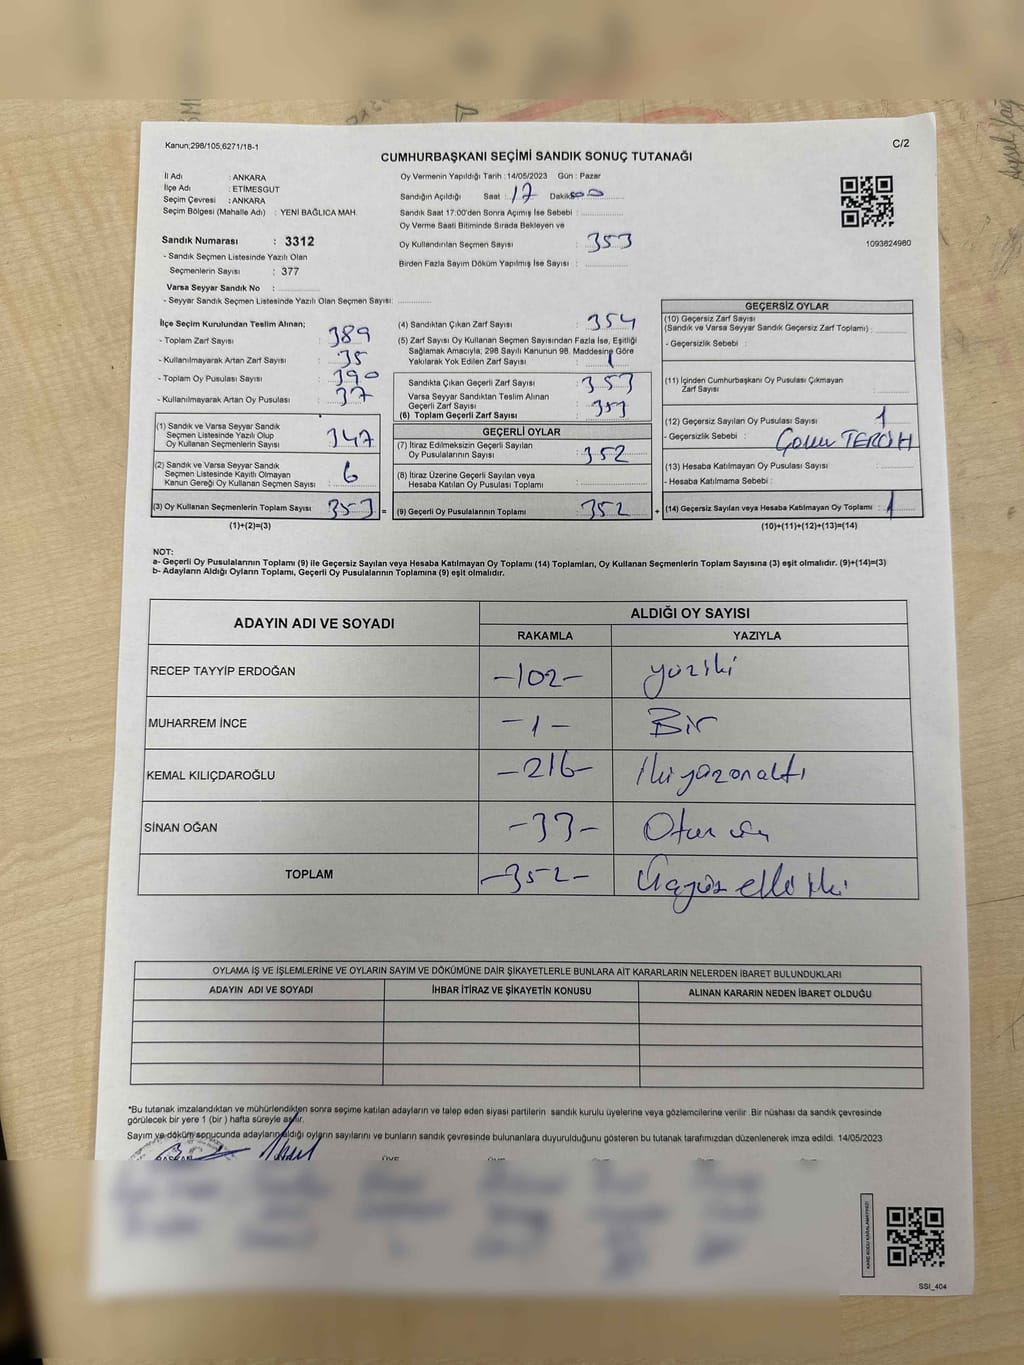 Kanun;298/105;6271/18-1
C/2
CUMHURBAŞKANI SEÇİMİ SANDIK SONUÇ TUTANAĞI
İl Adı : ANKARA
İlçe Adı : ETİMESGUT
Seçim Çevresi : ANKARA
Seçim Bölgesi (Mahalle Adı) : YENİ BAĞLICA MAH.
Sandık Numarası : 3312
- Sandık Seçmen Listesinde Yazılı Olan
Seçmenlerin Sayısı : 377
Varsa Seyyar Sandık No :
- Seyyar Sandık Seçmen Listesinde Yazılı Olan Seçmen Sayısı:
Oy Vermenin Yapıldığı Tarih : 14/05/2023 Gün : Pazar
Sandığın Açıldığı Saat : 17 Dakika: 00
Sandık Saat 17:00'den Sonra Açımış İse Sebebi :
Oy Verme Saati Bitiminde Sırada Bekleyen ve
Oy Kullandırılan Seçmen Sayısı : 353
Birden Fazla Sayım Döküm Yapılmış İse Sayısı :
1093824980
İlçe Seçim Kurulundan Teslim Alınan;
- Toplam Zarf Sayısı : 389
- Kullanılmayarak Artan Zarf Sayısı : 35
- Toplam Oy Pusulası Sayısı : 390
- Kullanılmayarak Artan Oy Pusulası : 37
(1) Sandık ve Varsa Seyyar Sandık
Seçmen Listesinde Yazılı Olup
Oy Kullanan Seçmenlerin Sayısı : 347
(2) Sandık ve Varsa Seyyar Sandık
Seçmen Listesinde Kayıtlı Olmayan
Kanun Gereği Oy Kullanan Seçmen Sayısı : 6
(3) Oy Kullanan Seçmenlerin Toplam Sayısı : 353 =
(1)+(2)=(3)
(4) Sandıktan Çıkan Zarf Sayısı : 354
(5) Zarf Sayısı Oy Kullanan Seçmen Sayısından Fazla İse, Eşitliği
Sağlamak Amacıyla; 298 Sayılı Kanunun 98. Maddesine Göre
Yakılarak Yok Edilen Zarf Sayısı : 1
Sandıkta Çıkan Geçerli Zarf Sayısı : 353
Varsa Seyyar Sandıktan Teslim Alınan
Geçerli Zarf Sayısı :
(6) Toplam Geçerli Zarf Sayısı : 353
GEÇERLİ OYLAR
(7) İtiraz Edilmeksizin Geçerli Sayılan
Oy Pusulalarının Sayısı : 352
(8) İtiraz Üzerine Geçerli Sayılan veya
Hesaba Katılan Oy Pusulası Toplamı :
(9) Geçerli Oy Pusulalarının Toplamı : 352 +
GEÇERSİZ OYLAR
(10) Geçersiz Zarf Sayısı
(Sandık ve Varsa Seyyar Sandık Geçersiz Zarf Toplamı) :
- Geçersizlik Sebebi :
(11) İçinden Cumhurbaşkanı Oy Pusulası Çıkmayan
Zarf Sayısı :
(12) Geçersiz Sayılan Oy Pusulası Sayısı : 1
- Geçersizlik Sebebi : TERCİH
(13) Hesaba Katılmayan Oy Pusulası Sayısı :
- Hesaba Katılmama Sebebi :
(14) Geçersiz Sayılan veya Hesaba Katılmayan Oy Toplamı : 1
(10)+(11)+(12)+(13)=(14)
NOT:
a- Geçerli Oy Pusulalarının Toplamı (9) ile Geçersiz Sayılan veya Hesaba Katılmayan Oy Toplamı (14) Toplamları, Oy Kullanan Seçmenlerin Toplam Sayısına (3) eşit olmalıdır. (9)+(14)=(3)
b- Adayların Aldığı Oyların Toplamı, Geçerli Oy Pusulalarının Toplamına (9) eşit olmalıdır.
ADAYIN ADI VE SOYADI ALDIĞI OY SAYISI
RAKAMLA YAZIYLA
RECEP TAYYİP ERDOĞAN -102- yüziki
MUHARREM İNCE -1- Bir
KEMAL KILIÇDAROĞLU -216- ikiyüzonaltı
SİNAN OĞAN -33- Otuz üç
TOPLAM -352- Üçyüz elli iki
OYLAMA İŞ VE İŞLEMLERİNE VE OYLARIN SAYIM VE DÖKÜMÜNE DAİR ŞİKAYETLERLE BUNLARA AİT KARARLARIN NELERDEN İBARET BULUNDUKLARI
ADAYIN ADI VE SOYADI İHBAR İTİRAZ VE ŞİKAYETİN KONUSU ALINAN KARARIN NEDEN İBARET OLDUĞU
*Bu tutanak imzalandıktan ve mühürlendikten sonra seçime katılan adayların ve talep eden siyasi partilerin sandık kurulu üyelerine veya gözlemcilerine verilir. Bir nüshası da sandık çevresinde
görülecek bir yere 1 (bir) hafta süreyle asılır.
Sayım ve döküm sonucunda adayların aldığı oyların sayılarını ve bunların sandık çevresinde bulunanlara duyurulduğunu gösteren bu tutanak tarafımızdan düzenlenerek imza edildi. 14/05/2023
BAŞKAN ÜYE
SSI_404